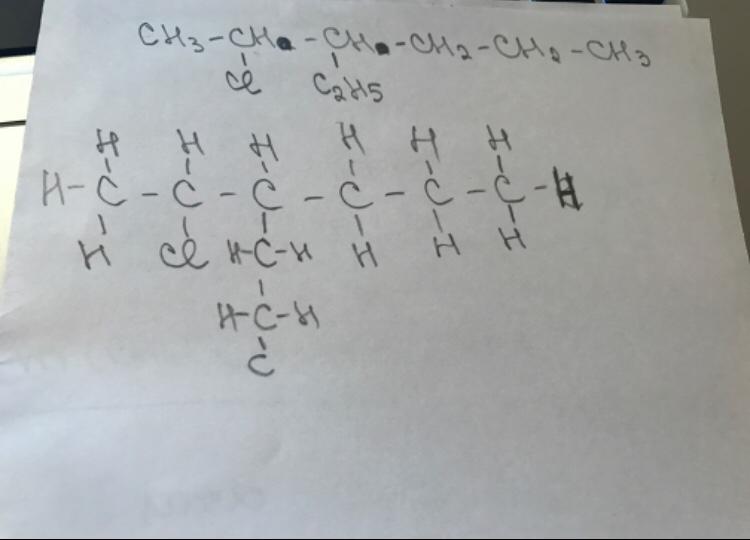 CH3-CH-CH-CH2-CH2-CH3
Cl C2H5
H H H H H H
H-C-C-C-C-C-C-H
H Cl H-C-H H H H
H-C-H
C